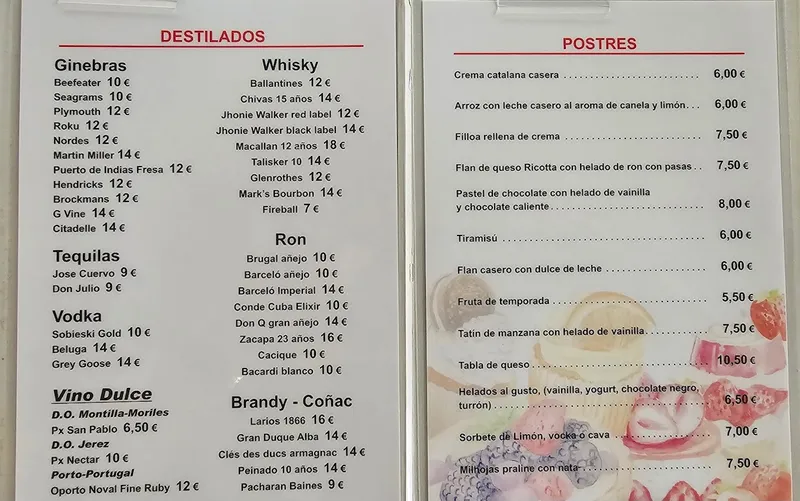 DESTILADOS
Ginebras
Beefeater 10 €
Seagrams 10 €
Plymouth 12 €
Roku 12 €
Nordes 12 €
Martin Miller 14 €
Puerto de Indias Fresa 12 €
Hendricks 12 €
Brockmans 12 €
G Vine 14 €
Citadelle 14 €
Tequilas
Jose Cuervo 9 €
Don Julio 9 €
Vodka
Sobieski Gold 10 €
Beluga 14 €
Grey Goose 14 €
Vino Dulce
D.O. Montilla-Moriles
Px San Pablo 6,50 €
D.O. Jerez
Px Nectar 10 €
Porto-Portugal
Oporto Noval Fine Ruby 12 €
Whisky
Ballantines 12 €
Chivas 15 años 14 €
Jhonie Walker red label 12 €
Jhonie Walker black label 14 €
Macallan 12 años 18 €
Talisker 10 14 €
Glenrothes 12 €
Mark's Bourbon 14 €
Fireball 7 €
Ron
Brugal añejo 10 €
Barceló añejo 10 €
Barceló Imperial 14 €
Conde Cuba Elixir 10 €
Don Q gran añejo 14 €
Zacapa 23 años 16 €
Cacique 10 €
Bacardi blanco 10 €
Brandy - Coñac
Larios 1866 16 €
Gran Duque Alba 14 €
Clés des ducs armagnac 14 €
Peinado 10 años 14 €
Pacharan Baines 9 €
POSTRES
Crema catalana casera 6,00 €
Arroz con leche casero al aroma de canela y limón... 6,00 €
Filloa rellena de crema 7,50 €
Flan de queso Ricotta con helado de ron con pasas.. 7,50 €
Pastel de chocolate con helado de vainilla
y chocolate caliente 8,00 €
Tiramisú 6,00 €
Flan casero con dulce de leche 6,00 €
Fruta de temporada 5,50 €
Tatín de manzana con helado de vainilla 7,50 €
Tabla de queso 10,50 €
Helados al gusto, (vainilla, yogurt, chocolate negro,
turrón) 6,50 €
Sorbete de Limón, vocka o cava 7,00 €
Milhojas praline con nata 7,50 €